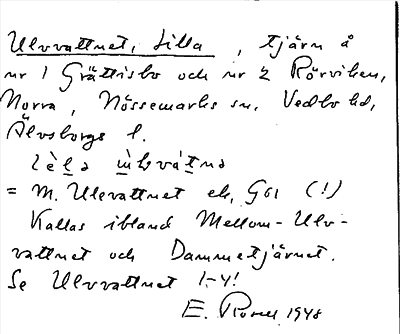 Ulvvattnet, Lilla, tjärn å
nr 1 Grättisbo och nr 2 Rörviken,
Norra, Nössemarks sn, Vedbo hd,
Älvsborgs l.
= M. Ulevattnet ek, G61 (!)
Kallas ibland Mellom-Ulv-
vattnet och Dammetjärnet.
Se Ulvvattnet 1-4!
E. 1948